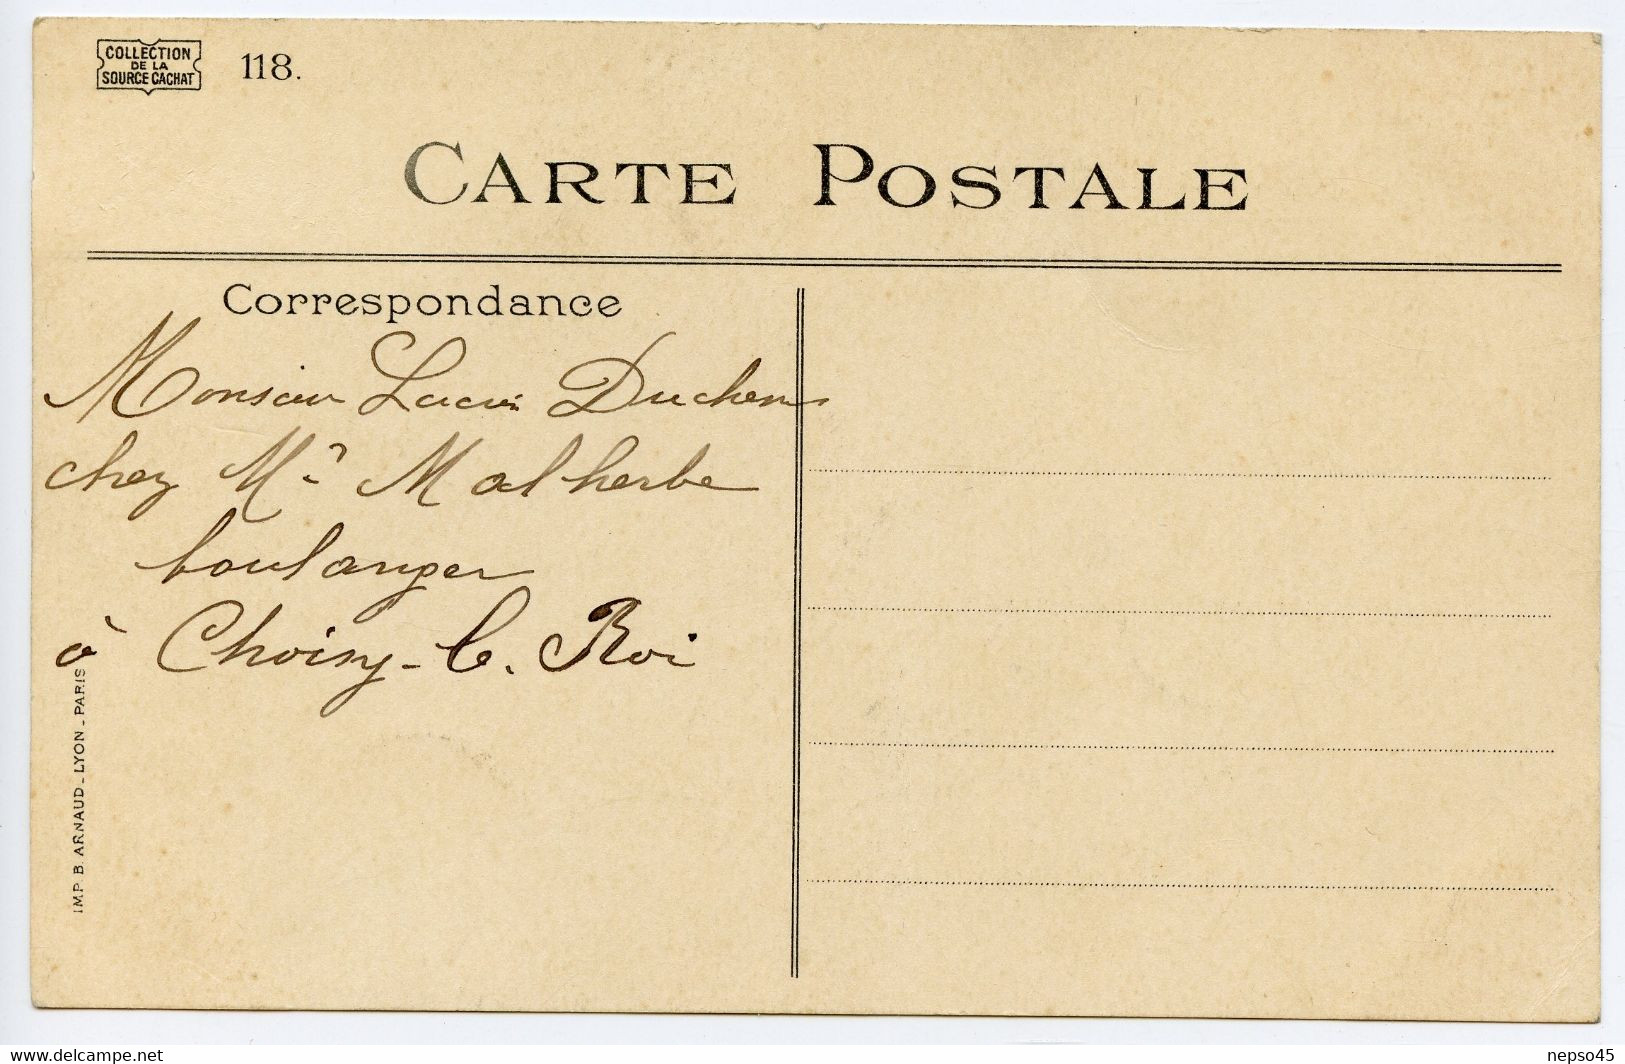 COLLECTION
DE LA
SOURCE CACHAT
118.
CARTE POSTALE
Correspondance
Monsieur Lucien Duchem
chez Mr Malherbe
boulanger
à Choisy-le-Roi
IMP. B. ARNAUD - LYON - PARIS
delcampe.net
nepso45